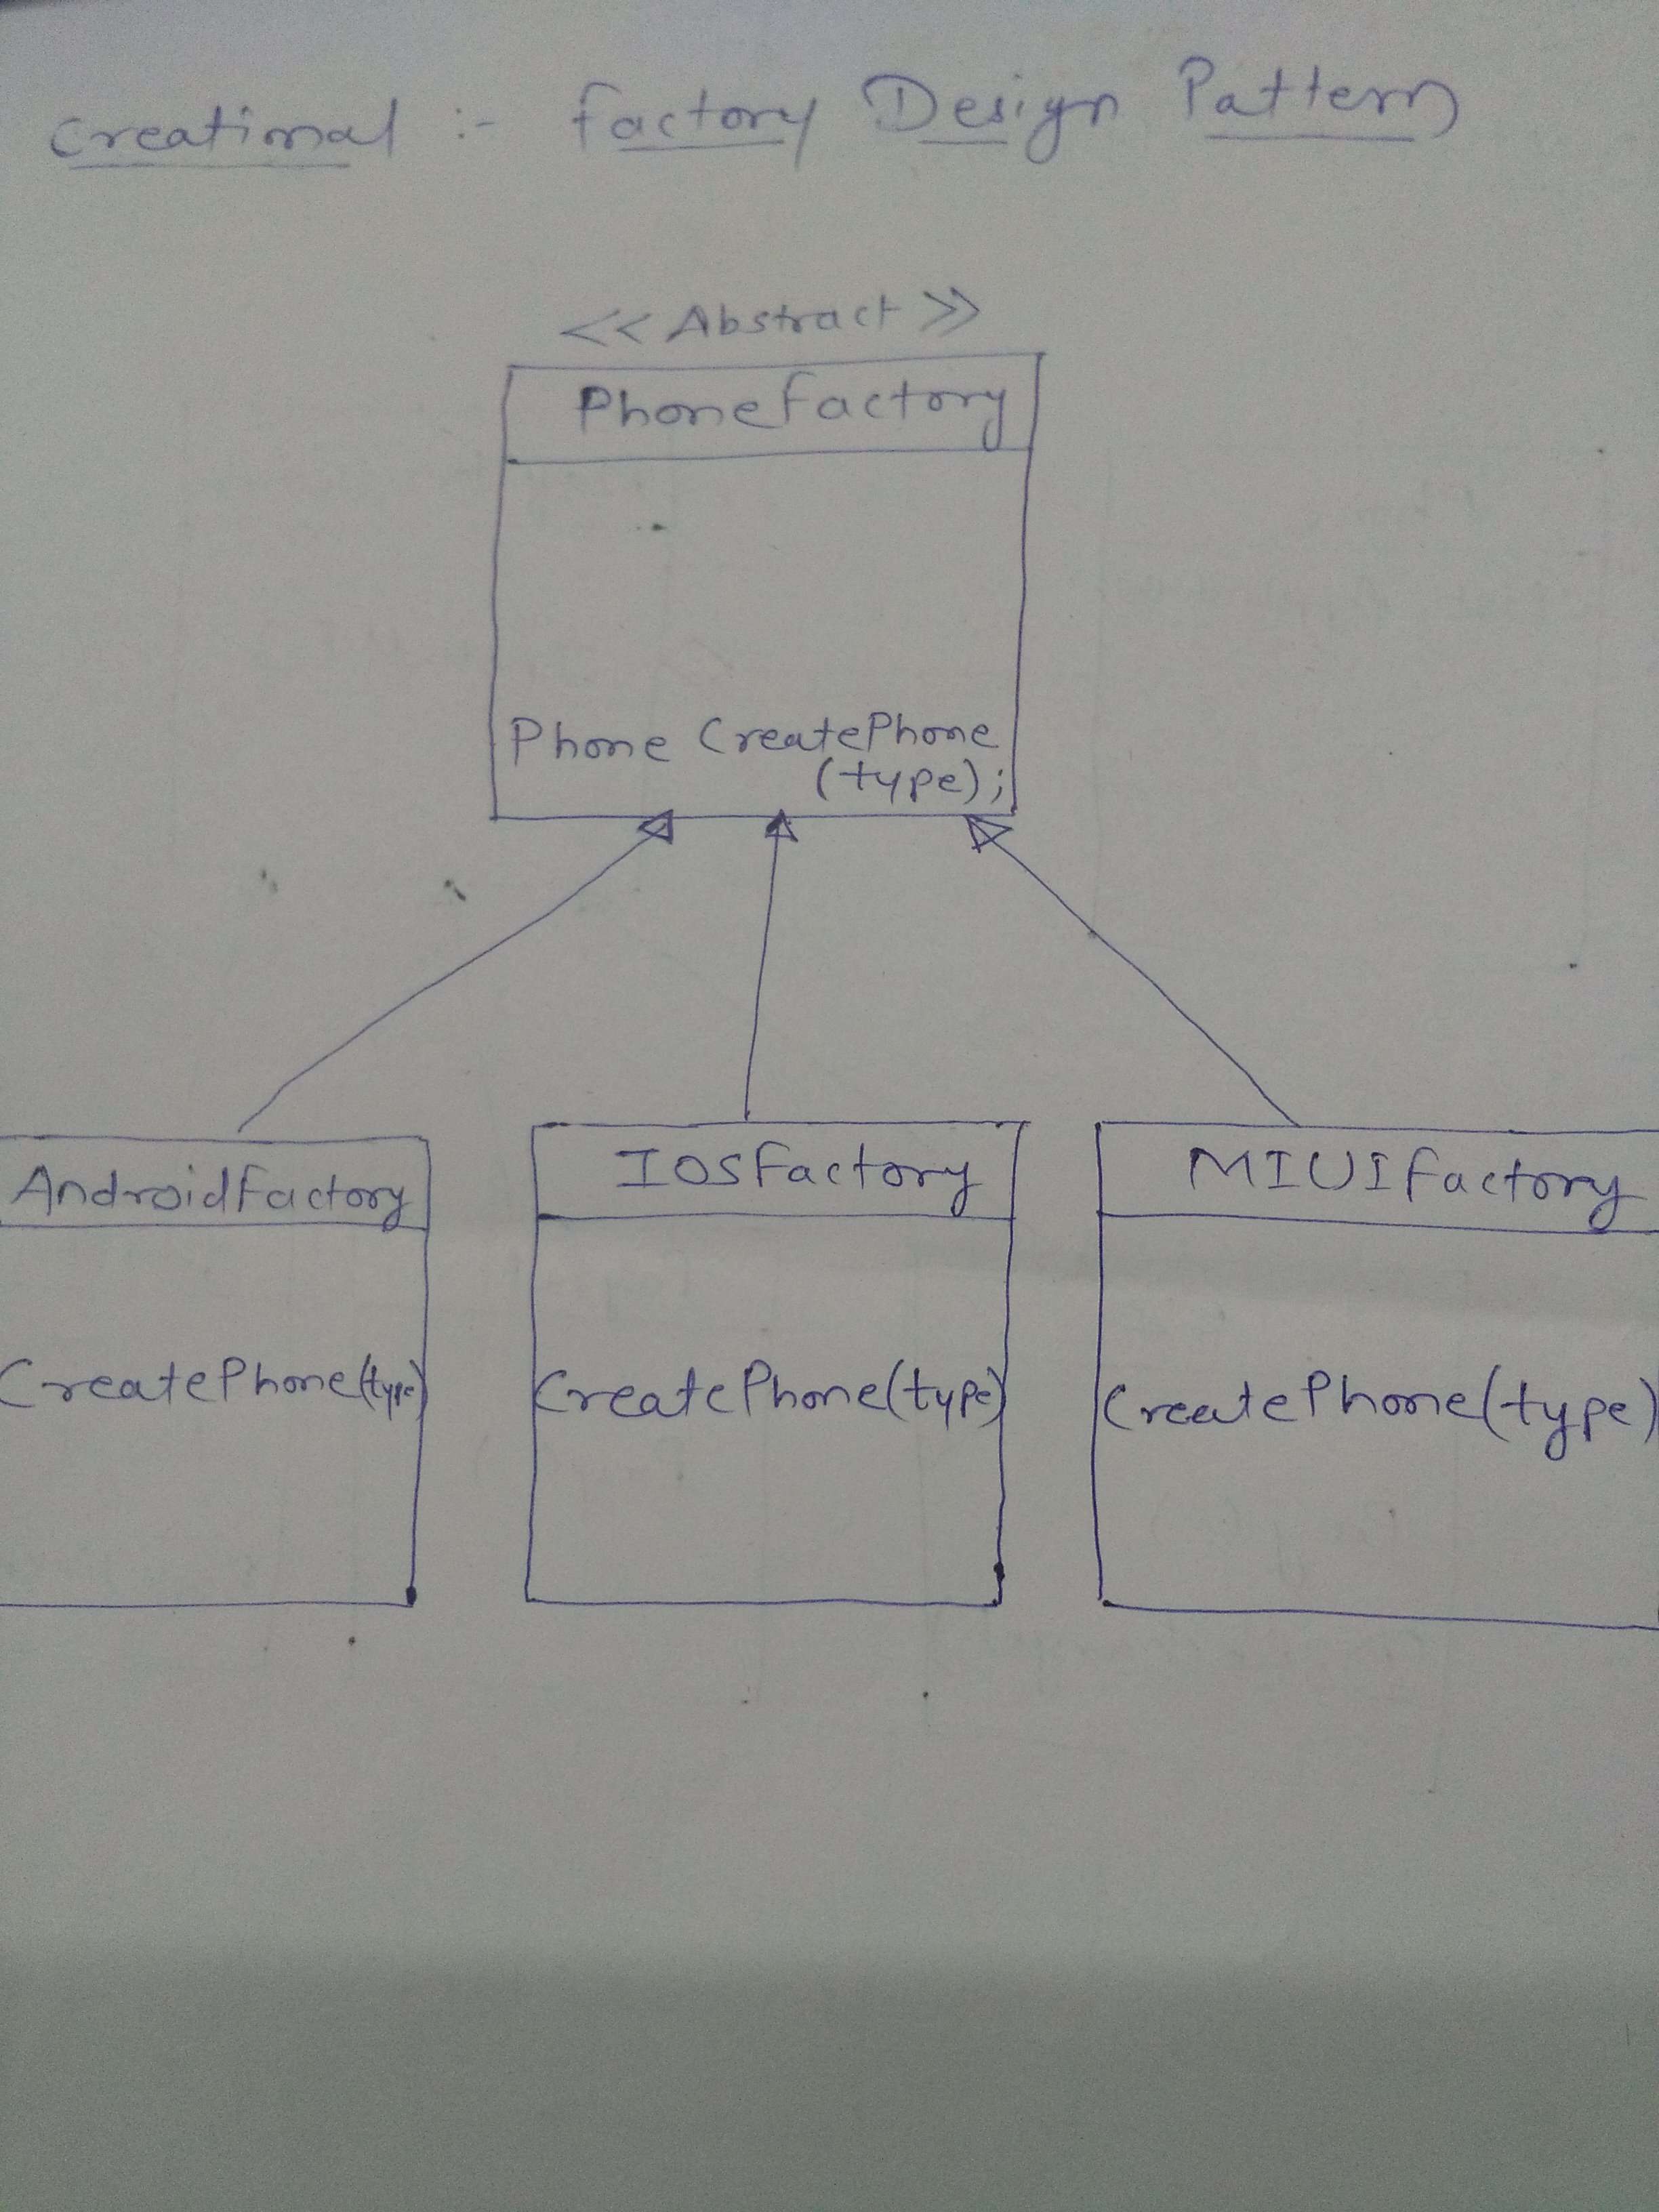 Creational :- Factory Design Pattern
<< Abstract >>
PhoneFactory
Phone CreatePhone
(type);
AndroidFactory
IOSFactory
MIUIFactory
CreatePhone(type)
CreatePhone(type)
CreatePhone(type)